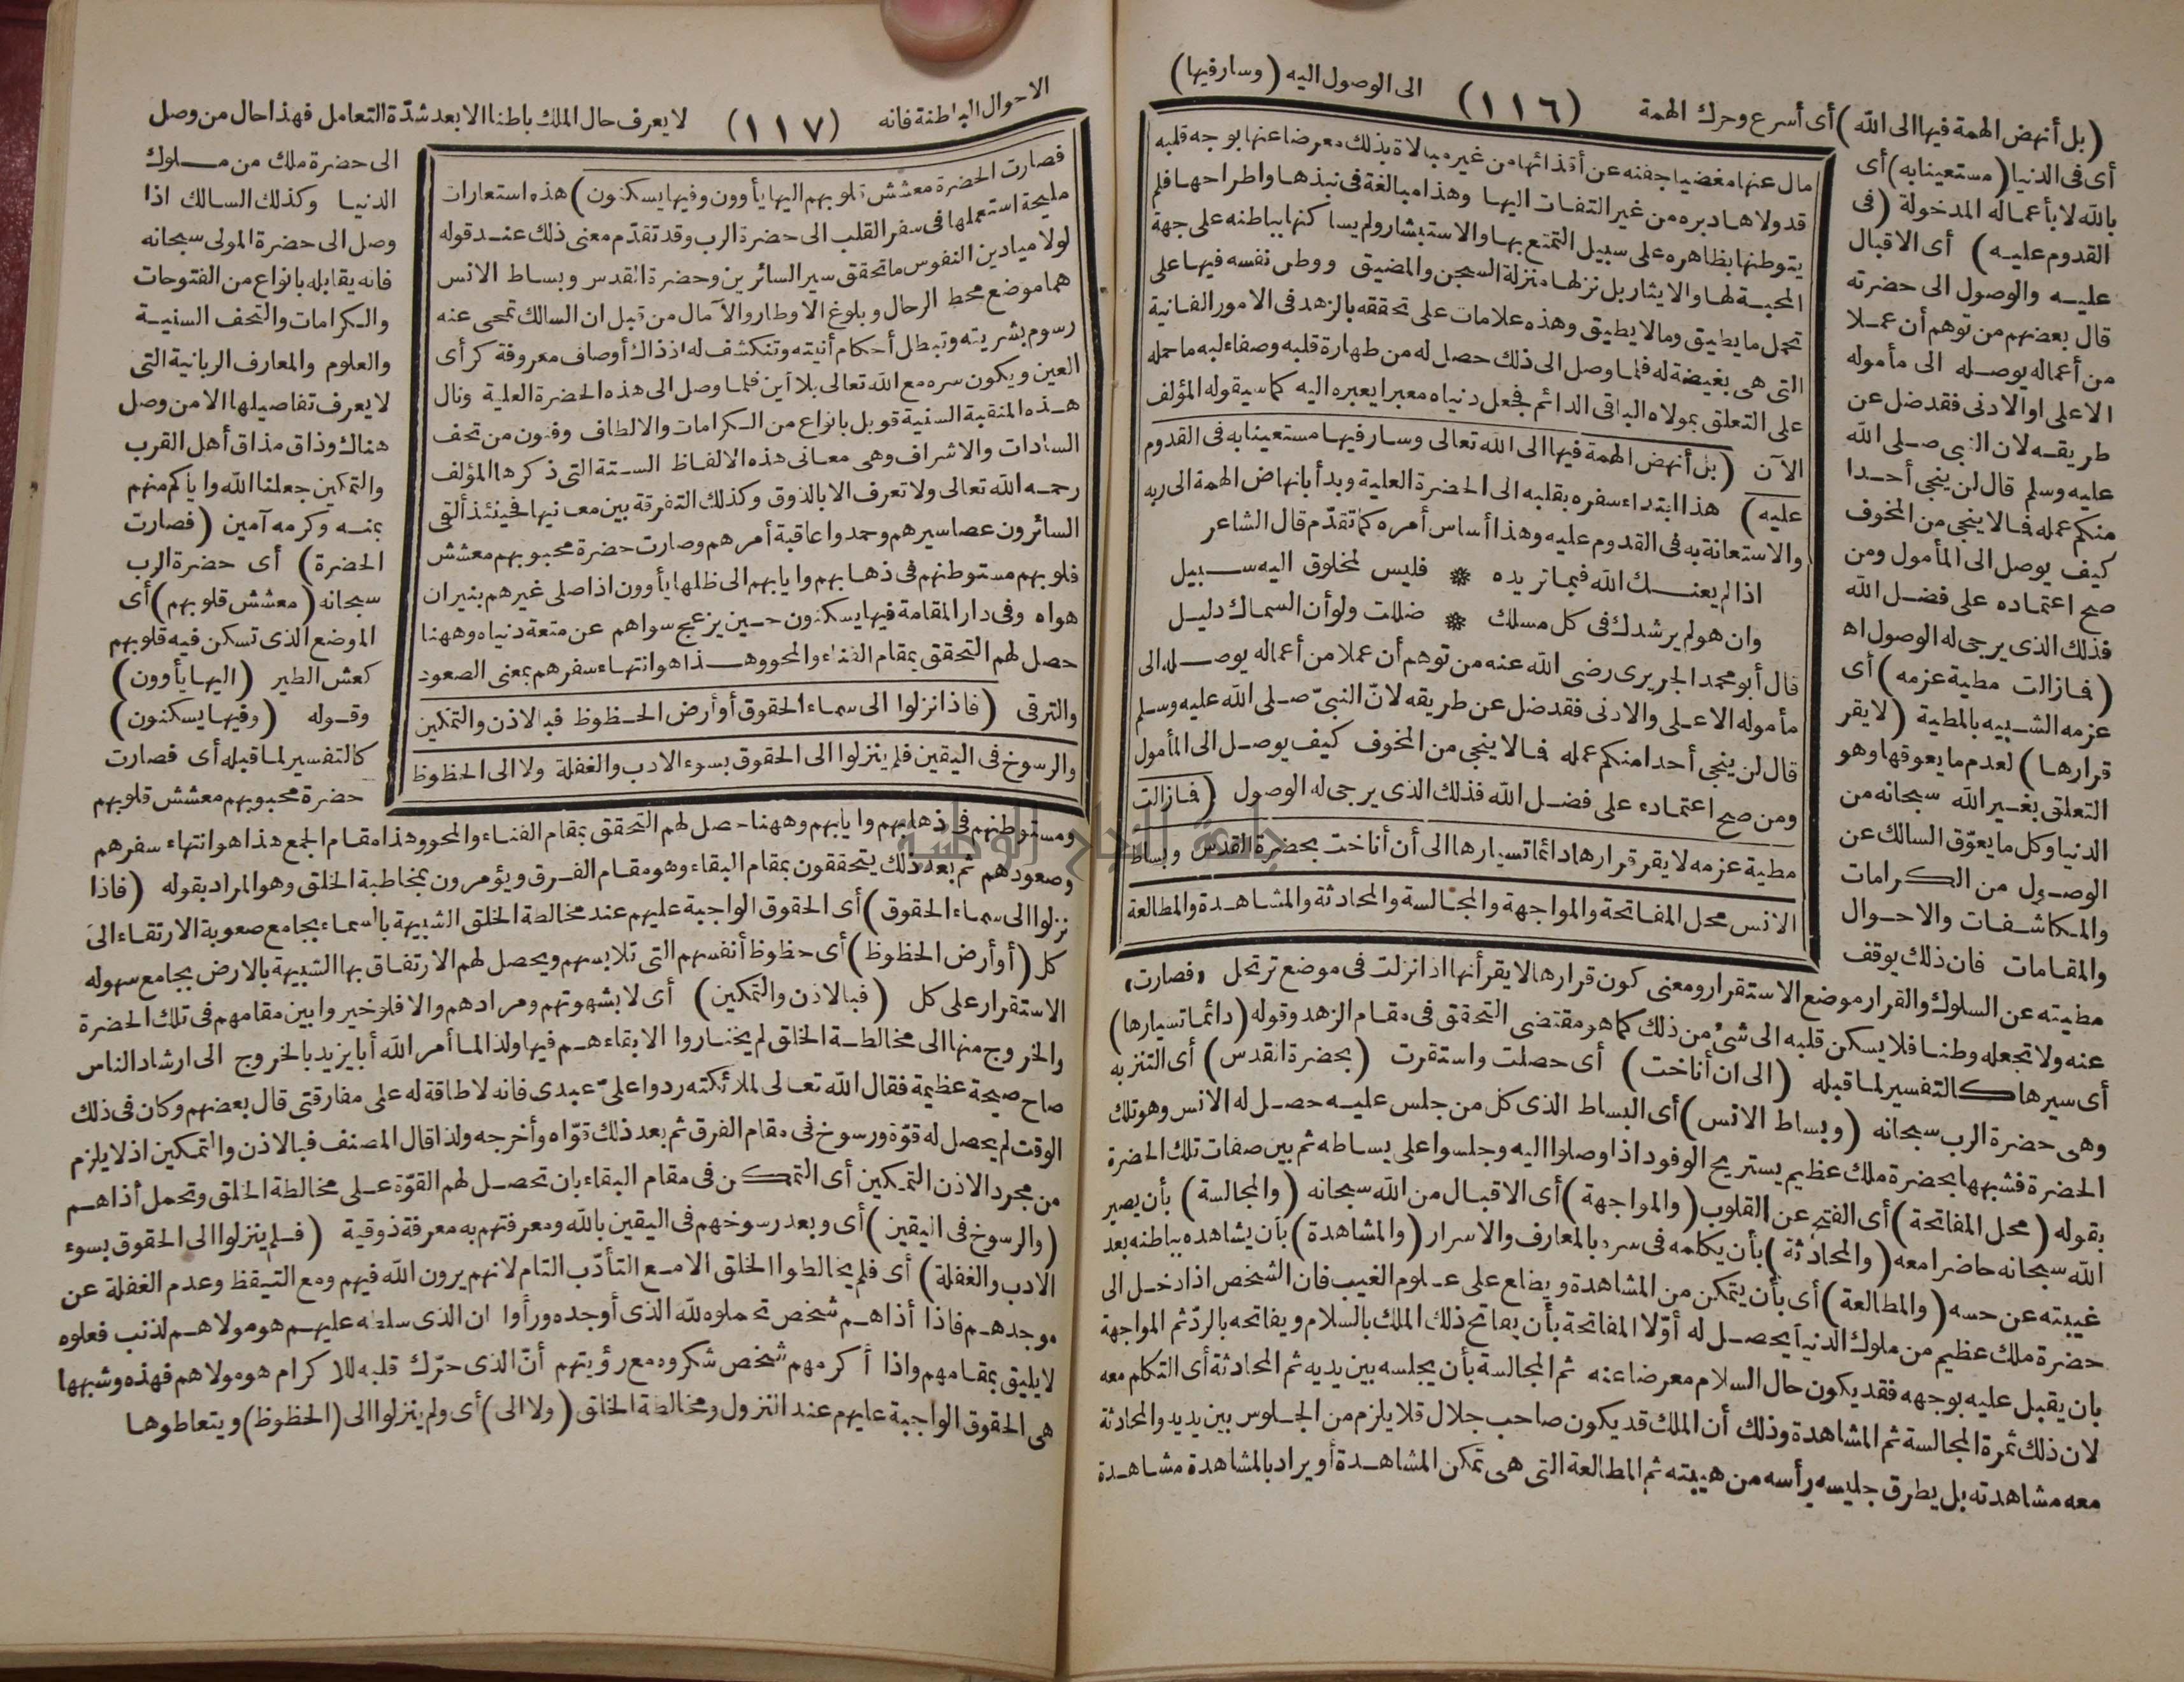 (بل أنهض الهمة فيها الى الله) أى أسرع وحرك الهمة (١١٦) الى الوصول اليه (وسار فيها)
أى فى الدنيا (مستعينا به) أى
بالله لا بأعماله المدخولة (فى
القدوم عليه) أى الاقبال
عليه والوصول الى حضرته
قال بعضهم من توهم أن عملا
من أعماله يوصله الى مأموله
الاعلى او الادنى فقد ضل عن
طريقه لان النبى صلى الله
عليه وسلم قال لن ينجى أحدا
منكم عمله فالا ينجى من المخوف
كيف يوصل الى المأمول ومن
صح اعتماده على فضل الله
فذلك الذى يرجى له الوصول اه
(فازالت مطية عزمه) أى
عزمه الشبيه بالمطية (لا يقر
قرارها) لعدم ما يعوقها وهو
التعلق بغير الله سبحانه من
الدنيا وكل ما يعوّق السالك عن
الوصول من الكرامات
والمكاشفات والاحوال
والمقامات فان ذلك يوقف
مال عنها مغضيا جفنه عن أقذائها من غير مبالاة بذلك معرضا عنها بوجه قلبه
قد ولاها دبره من غير التفات اليها وهذا مبالغة فى نبذها واطراحها فلم
يتوطنها بظاهره على سبيل التمتع بها والاستبشار ولم يساكنها بباطنه على جهة
المحبة لها والايثار بل نزلها منزلة السجن والمضيق ووطن نفسه فيها على
تحمل ما يطيق وما لا يطيق وهذه علامات على تحققه بالزهد فى الامور الفانية
التى هى بغيضة له فلما وصل الى ذلك حصل له من طهارة قلبه وصفاء لبه ما حمله
على التعلق بمولاه الباقى الدائم فجعل دنياه معبرا يعبره اليه كما سيقوله المؤلف
الآن (بل أنهض الهمة فيها الى الله تعالى وسار فيها مستعينا به فى القدوم
عليه) هذا ابتداء سفره بقلبه الى الحضرة العلية وبدأ بانهاض الهمة الى ربه
والاستعانة به فى القدوم عليه وهذا أساس أمره كما تقدّم قال الشاعر
اذا لم يعنك الله فيما تريده * فليس لمخلوق اليه سبيل
وان هو لم يرشدك فى كل مسلك * ضللت ولو أن السماك دليل
قال أبو محمد الجريرى رضى الله عنه من توهم أن عملا من أعماله يوصله الى
مأموله الاعلى والادنى فقد ضل عن طريقه لانّ النبىّ صلى الله عليه وسلم
قال لن ينجى أحدا منكم عمله فالا ينجى من المخوف كيف يوصل الى المأمول
ومن صح اعتماده على فضل الله فذلك الذى يرجى له الوصول (فازالت
مطية عزمه لا يقر قرارها دائما تسيارها الى أن أناخت بحضرة القدس وبساط
الانس محل المفاتحة والمواجهة والمجالسة والمحادثة والمشاهدة والمطالعة
مطيته عن السلوك والقرار موضع الاستقرار ومعنى كون قرارها لا يقر أنها اذا نزلت فى موضع ترتحل (فصارت)
عنه ولا تجعله وطنا فلا يسكن قلبه الى شئ من ذلك كما هو مقتضى التحقق فى مقام الزهد وقوله (دائما تسيارها)
أى سيرها كالتفسير لما قبله (الى ان أناخت) أى حصلت واستقرت (بحضرة القدس) أى التنزيه
وهى حضرة الرب سبحانه (وبساط الانس) أى البساط الذى كل من جلس عليه حصل له الانس وهو تلك
الحضرة فشبهها بحضرة ملك عظيم يستريح الوفود اذا وصلوا اليه وجلسوا على بساطه ثم بين صفات تلك الحضرة
بقوله (محل المفاتحة) أى الفتح عن القلوب (والمواجهة) أى الاقبال من الله سبحانه (والمجالسة) بأن يصير
الله سبحانه حاضرا معه (والمحادثة) بأن يكلمه فى سره بالمعارف والاسرار (والمشاهدة) بأن يشاهده بباطنه بعد
غيبته عن حسه (والمطالعة) أى بأن يتمكن من المشاهدة ويطلع على علوم الغيب فان الشخص اذا دخل الى
حضرة ملك عظيم من ملوك الدنيا يحصل له أوّلا المفاتحة بأن يفاتح ذلك الملك بالسلام ويفاتحه بالردّ ثم المواجهة
بان يقبل عليه بوجهه فقد يكون حال السلام معرضا عنه ثم المجالسة بأن يجلسه بين يديه ثم المحادثة أى التكلم معه
لان ذلك ثمرة المجالسة ثم المشاهدة وذلك أن الملك قد يكون صاحب جلال فلا يلزم من الجلوس بين يديه والمحادثة
معه مشاهدته بل يطرق جليسه برأسه من هيبته ثم المطالعة التى هى تمكن المشاهدة أو يراد بالمشاهدة مشاهدة
الاحوال الباطنة فانه (١١٧) لا يعرف حال الملك باطنا الا بعد شدّة التعامل فهذا حال من وصل
فصارت الحضرة معشش قلوبهم اليها يأوون وفيها يسكنون) هذه استعارات
مليحة استعملها فى سفر القلب الى حضرة الرب وقد تقدّم معنى ذلك عند قوله
لولا ميادين النفوس ما تحقق سير السائرين وحضرة القدس وبساط الانس
هما موضع محط الرحال وبلوغ الاوطار والآمال من قبل ان السالك تمحى عنه
رسوم بشريته وتبطل أحكام أنيته وتنكشف له اذ ذاك أوصاف معروفة كرأى
العين ويكون سره مع الله تعالى بلا أين فلما وصل الى هذه الحضرة العلية ونال
هذه المنقبة السنية قوبل بانواع من الكرامات والالطاف وفنون من تحف
السادات والاشراف وهى معانى هذه الالفاظ الستة التى ذكرها المؤلف
رحمه الله تعالى ولا تعرف الا بالذوق وكذلك التفرقة بين معانيها فحينئذ ألقى
السائرون عصا سيرهم وحمدوا عاقبة أمرهم وصارت حضرة محبوبهم معشش
قلوبهم مستوطنهم فى ذهابهم وايابهم الى ظلها يأوون اذا صلى غيرهم بنيران
هواه وفى دار المقامة فيها يسكنون حين يزعج سواهم عن متعة دنياه وههنا
حصل لهم التحقق بمقام الفناء والمحو وهذا هو انتهاء سفرهم بمعنى الصعود
والترقى (فاذا نزلوا الى سماء الحقوق أو أرض الحظوظ فبالاذن والتمكين
والرسوخ فى اليقين فلم ينزلوا الى الحقوق بسوء الادب والغفلة ولا الى الحظوظ
الى حضرة ملك من ملوك
الدنيا وكذلك السالك اذا
وصل الى حضرة المولى سبحانه
فانه يقابله بانواع من الفتوحات
والكرامات والتحف السنية
والعلوم والمعارف الربانية التى
لا يعرف تفاصيلها الا من وصل
هناك وذاق مذاق أهل القرب
والتمكين جعلنا الله واياكم منهم
بمنه وكرمه آمين (فصارت
الحضرة) أى حضرة الرب
سبحانه (معشش قلوبهم) أى
الموضع الذى تسكن فيه قلوبهم
كعش الطير (اليها يأوون)
وقوله (وفيها يسكنون)
كالتفسير لما قبله أى فصارت
حضرة محبوبهم معشش قلوبهم
ومستوطنهم فى ذهابهم وايابهم وههنا حصل لهم التحقق بمقام الفناء والمحو وهذا مقام الجمع هذا هو انتهاء سفرهم
وصعودهم ثم بعد ذلك يتحققون بمقام البقاء وهو مقام الفرق ويؤمرون بمخاطبة الخلق وهو المراد بقوله (فاذا
نزلوا الى سماء الحقوق) أى الحقوق الواجبة عليهم عند مخالطة الخلق الشبيهة بالسماء بجامع صعوبة الارتقاء الى
كل (أو أرض الحظوظ) أى حظوظ أنفسهم التى تلابسهم ويحصل لهم الارتفاق بها الشبيهة بالارض بجامع سهولة
الاستقرار على كل (فبالاذن والتمكين) أى لا بشهوتهم ومرادهم والا فلو خيروا بين مقامهم فى تلك الحضرة
والخروج منها الى مخالطة الخلق لم يختاروا الا بقاءهم فيها ولذا لما أمر الله أبا يزيد بالخروج الى ارشاد الناس
صاح صيحة عظيمة فقال الله تعالى لملائكته ردوا علىّ عبدى فانه لا طاقة له على مفارقتى قال بعضهم وكان فى ذلك
الوقت لم يحصل له قوّة ورسوخ فى مقام الفرق ثم بعد ذلك قوّاه وأخرجه ولذا قال المصنف فبالاذن والتمكين اذ لا يلزم
من مجرد الاذن التمكين أى التمكن فى مقام البقاء بان تحصل لهم القوّة على مخالطة الخلق وتحمل أذاهم
(والرسوخ فى اليقين) أى وبعد رسوخهم فى اليقين بالله ومعرفتهم به معرفة ذوقية (فلم ينزلوا الى الحقوق بسوء
الادب والغفلة) أى فلم يخالطوا الخلق الا مع التأدّب التام لانهم يرون الله فيهم ومع التيقظ وعدم الغفلة عن
موجدهم فاذا أذاهم شخص تحملوه لله الذى أوجده ورأوا ان الذى سلطه عليهم هو مولاهم لذنب فعلوه
لا يليق بمقامهم واذا أكرمهم شخص شكروه مع رؤيتهم أنّ الذى حرّك قلبه للاكرام هو مولاهم فهذه وشبهها
هى الحقوق الواجبة عليهم عند النزول ومخالطة الخلق (ولا الى) أى ولم ينزلوا الى (الحظوظ) ويتعاطوها
جامعة النجاح الوطنية